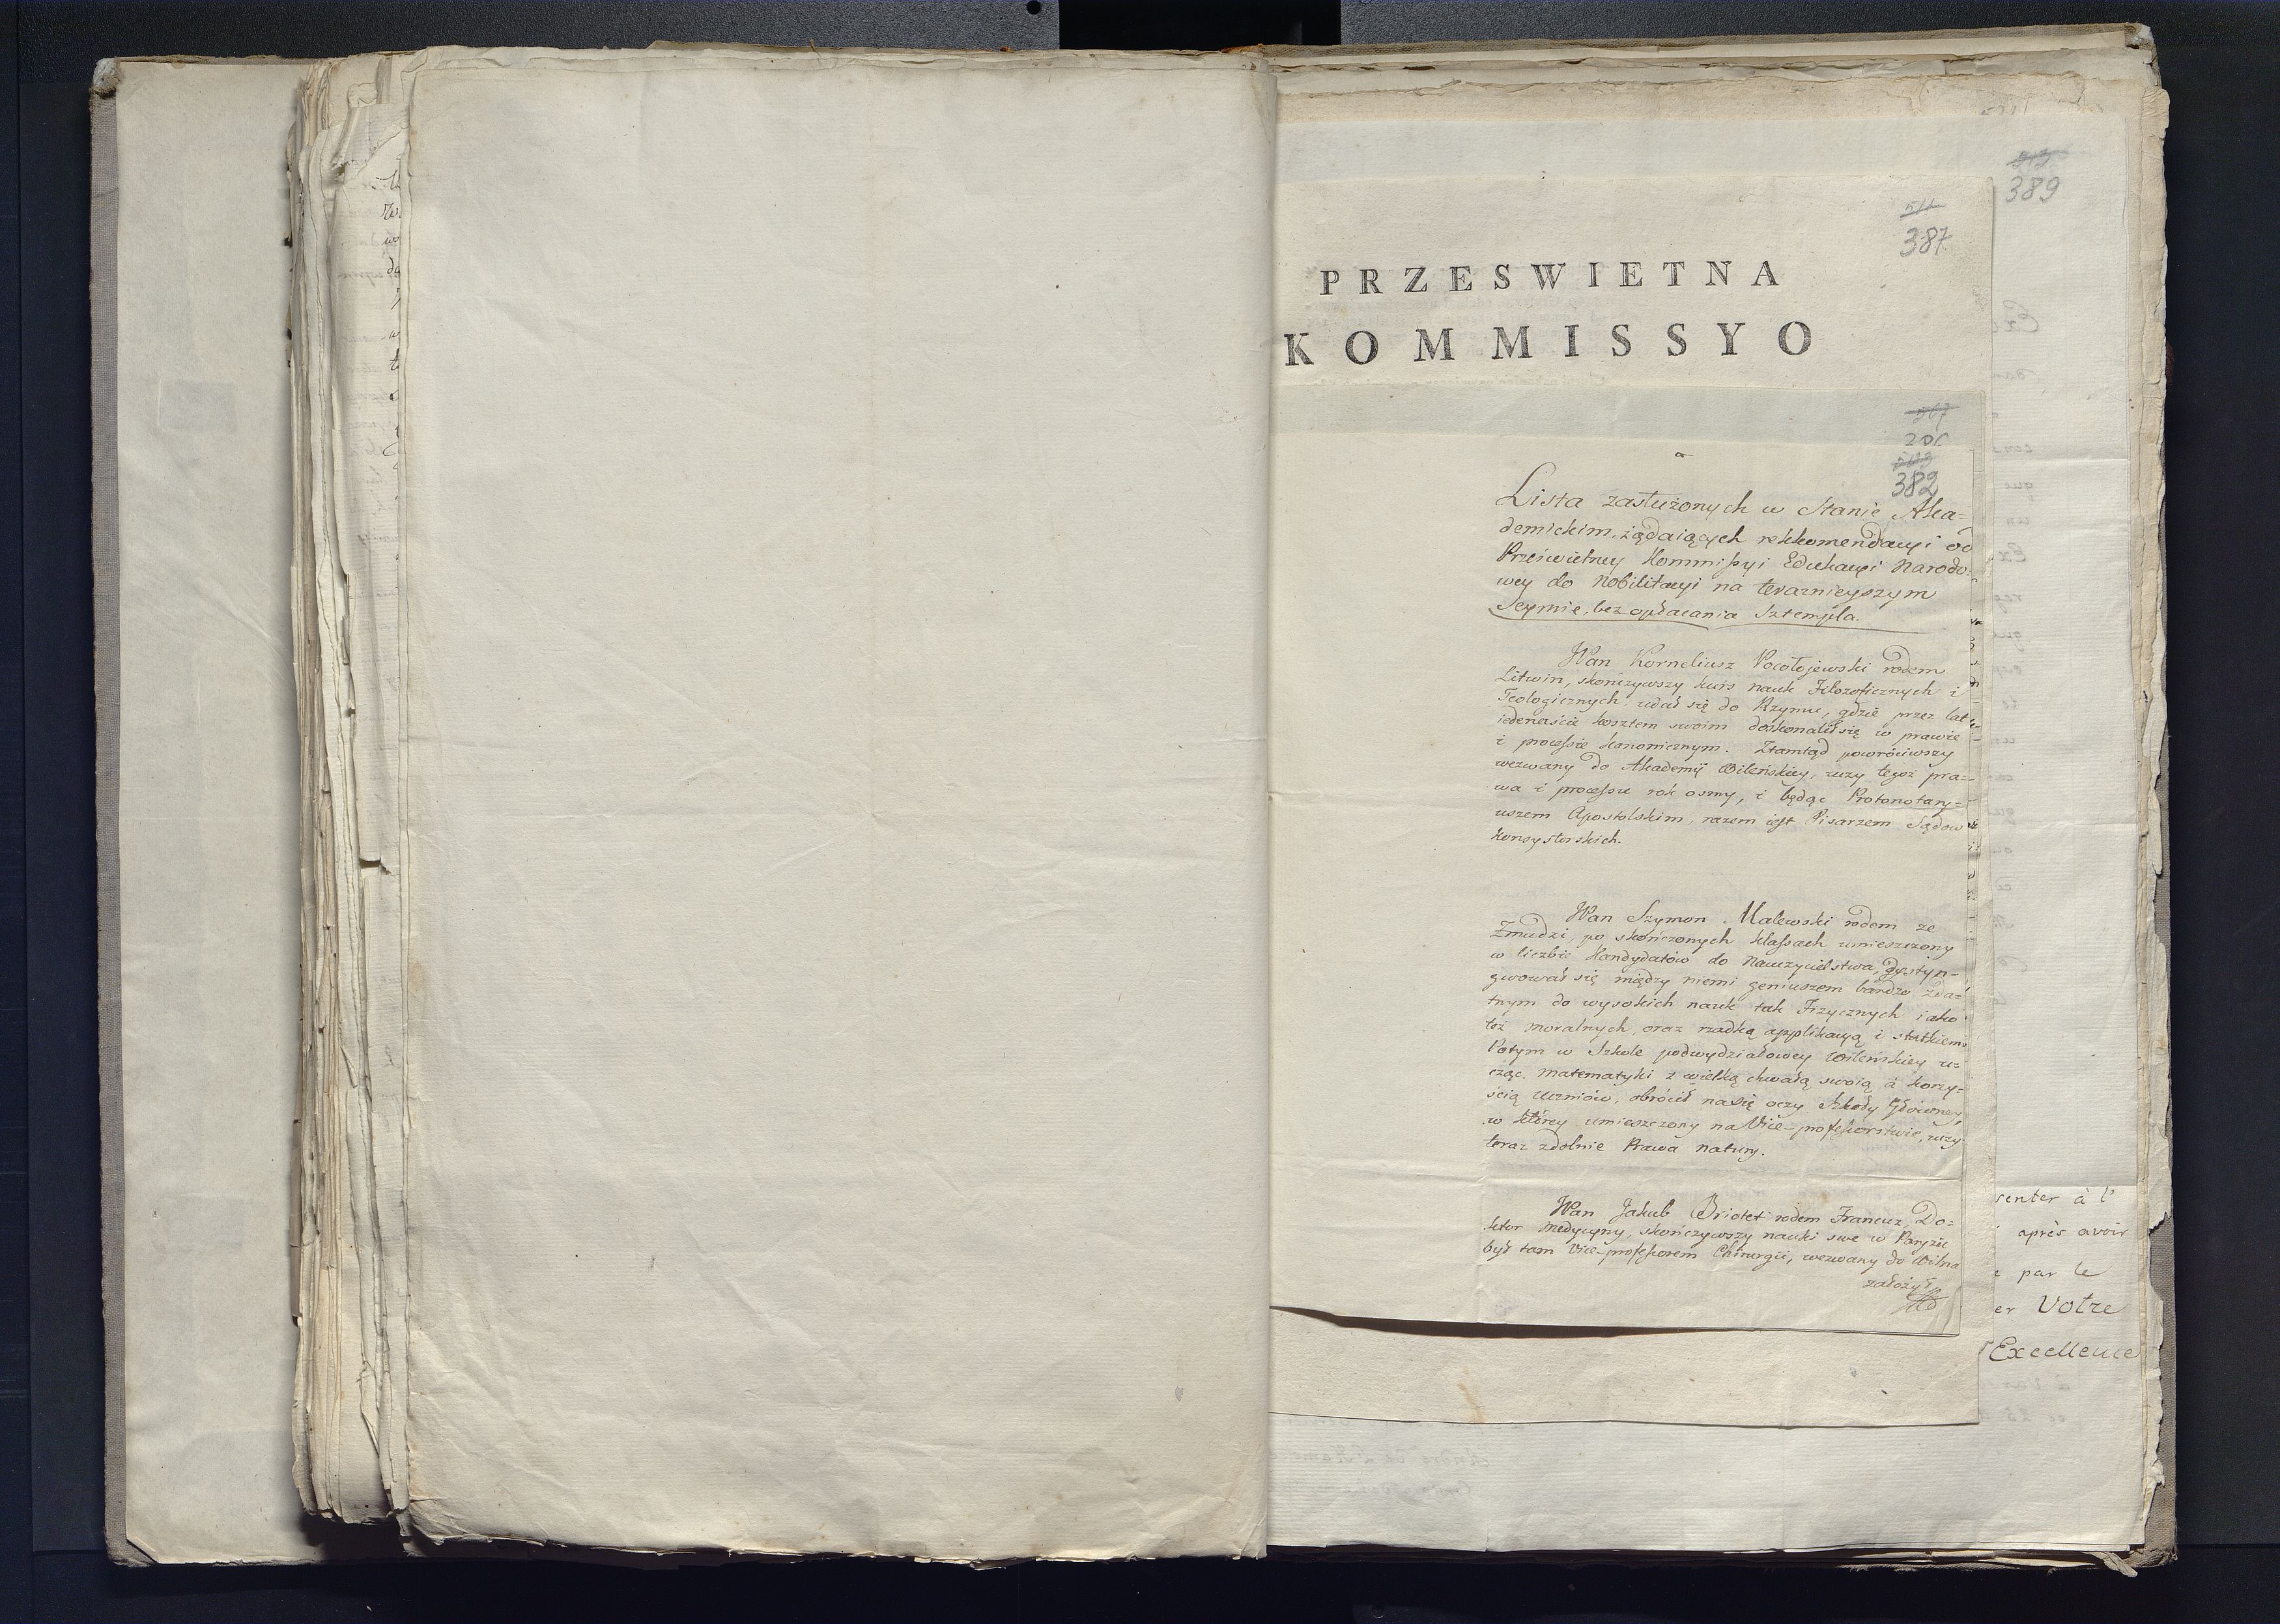 389
387
PRZESWIETNA
KOMMISSYO
382
Lista zasłużonych w Stanie Aka=
demickim, żądaiących rekkomendacyi od
Prześwietney Kommissyi Edukacyi Narodo=
wey do Nobilitacyi na teraznieyszym
Seymie, bez opłacania Sztempla.
JPan Korneliusz Pocołojewski rodem
Litwin, skończywszy kurs nauk Filozoficznych i
Teologicznych udał się do Rzymu, gdzie przez lat
iedenaście kosztem swoim doskonalił się w prawie
i processie kanonicznym. Ztamtąd powróciwszy
wezwany do Akademij Wileńskiey, uczy tegoż pra=
wa i processu rok osmy, i będąc Protonotary=
uszem Apostolskim, razem iest Pisarzem Sądow
Konsystorskich.
JPan Szymon Malewski rodem ze
Zmudzi, po skończonych klassach umieszczony
w liczbie Kandydatów do Nauczycielstwa, dystyn=
gwował się między niemi geniuszem bardzo zda=
tnym do wysokich nauk tak Fizycznych iako
też moralnych, oraz rzadką applikacyą i statkiem
Potym w Szkole podwydziałowey Wileńskiey u=
cząc matematyki z wielką chwałą swoią á korzy=
ścią Uczniów, obrócił na się oczy Szkoły Główney,
w którey umieszczony na Vice-professorstwie, uczy
teraz zdolnie Prawa natury.
JPan Jakub Briotet rodem Francuz, Do=
ktor medycyny, skończywszy nauki swe w Paryżu
był tam Vice-professorem Chirurgii, wezwany do Wilna
założył
senter à l'
après avoir
par le
er Votre
Excellence